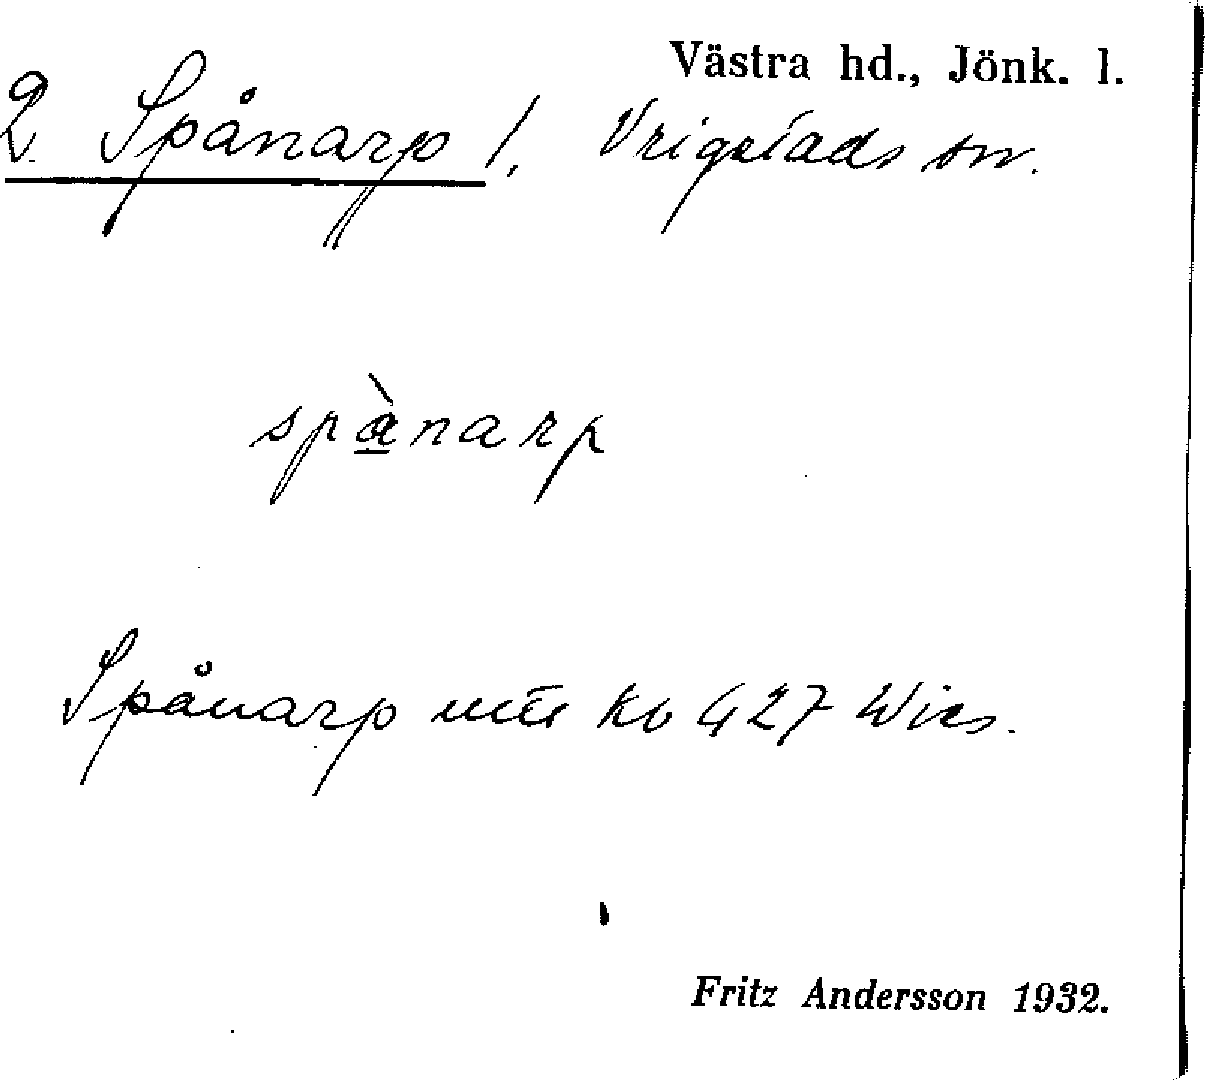 Västra hd., Jönk. l.
2. Spånarp 1, Vrigstads sn.
spànarp
Spånarp Ko 427 Wies.
Fritz Andersson 1932.